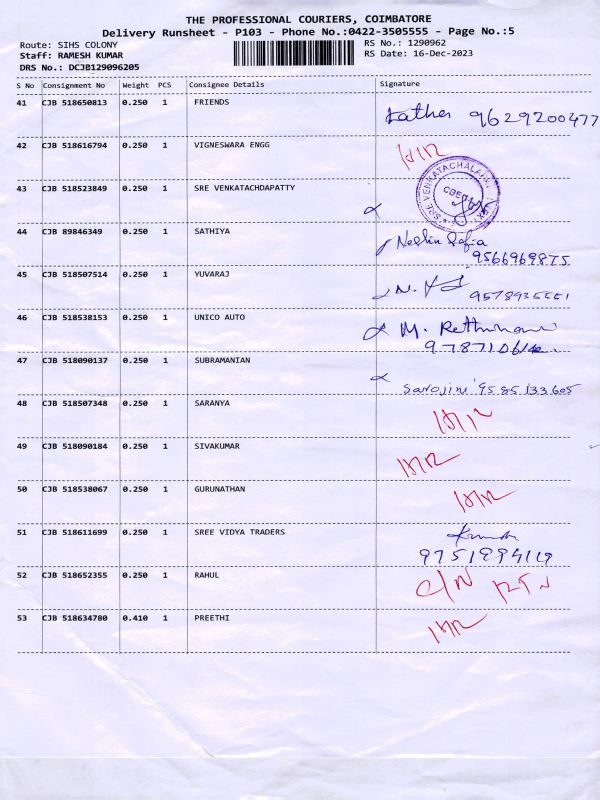 THE PROFESSIONAL COURIERS, COIMBATORE
Delivery Runsheet - P103 - Phone No.:0422-3505555 - Page No.:5
Route: SIHS COLONY
RS No.: 1290962
Staff: RAMESH KUMAR
RS Date: 16-Dec-2023
DRS No.: DCJB129096205
S No Consignment No Weight PCS Consignee Details Signature
41 CJB 518650813 0.250 1 FRIENDS 9629200477
42 CJB 518616794 0.250 1 VIGNESWARA ENGG
43 CJB 518523849 0.250 1 SRE VENKATACHDAPATTY
SRE VENKATACHALAPATHY
44 CJB 89846349 0.250 1 SATHIYA
9566969875
45 CJB 518507514 0.250 1 YUVARAJ
46 CJB 518538153 0.250 1 UNICO AUTO M.
47 CJB 518090137 0.250 1 SUBRAMANIAN
Sarojini 9585133605
48 CJB 518507348 0.250 1 SARANYA
49 CJB 518090184 0.250 1 SIVAKUMAR
50 CJB 518538067 0.250 1 GURUNATHAN
51 CJB 518611699 0.250 1 SREE VIDYA TRADERS
52 CJB 518652355 0.250 1 RAHUL
53 CJB 518634780 0.410 1 PREETHI